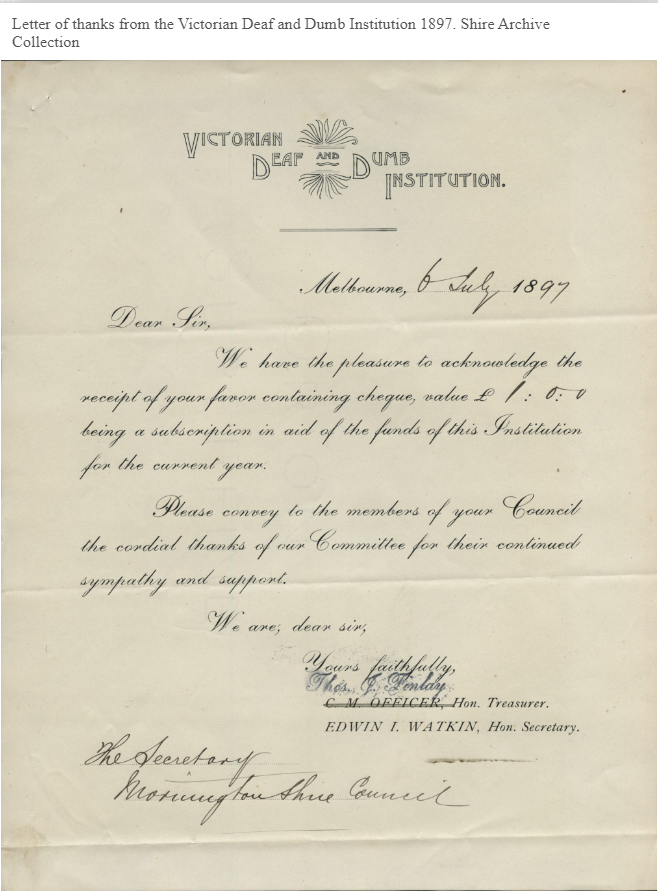 Letter of thanks from the Victorian Deaf and Dumb Institution 1897. Shire Archive
Collection
VICTORIAN
DEAF AND DUMB
INSTITUTION.
Melbourne, 6 July 1897
Dear Sir,
We have the pleasure to acknowledge the
receipt of your favor containing cheque, value £ 1 : 0 : 0
being a subscription in aid of the funds of this Institution
for the current year.
Please convey to the members of your Council
the cordial thanks of our Committee for their continued
sympathy and support.
We are, dear sir,
Yours faithfully,
Thos. J. Finlay
C. M. OFFICER, Hon. Treasurer.
EDWIN I. WATKIN, Hon. Secretary.
The Secretary
Mornington Shire Council